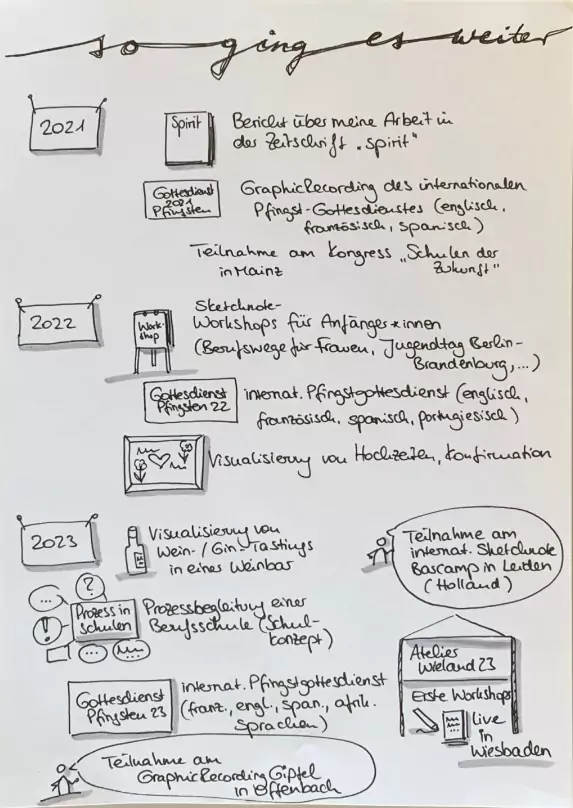 so ging es weiter
2021
Spirit
Bericht über meine Arbeit in
der Zeitschrift „Spirit"
Gottesdienst
2021
Pfingsten
GraphicRecording des internationalen
Pfingst-Gottesdienstes (englisch,
französisch, spanisch)
Teilnahme am Kongress „Schulen der
Zukunft"
in Mainz
2022
Work-
shop
Sketchnote-
Workshops für Anfänger*innen
(Berufswege für Frauen, Jugendtag Berlin-
Brandenburg,...)
Gottesdienst
Pfingsten 22
internat. Pfingstgottesdienst (englisch,
französisch, spanisch, portugiesisch)
Visualisierung von Hochzeiten, Konfirmation
2023
Visualisierung von
Wein-/Gin-Tastings
in einer Weinbar
Teilnahme am
internat. Sketchnote
Bascamp in Leiden
(Holland)
?
...
!
...
Prozess in
schulen
Prozessbegleitung einer
Berufsschule (Schul-
konzept)
Atelier
Wieland 23
Erste Workshops
live
in
Wiesbaden
Gottesdienst
Pfingsten 23
internat. Pfingstgottesdienst
(franz., engl., span., afrik.
Sprachen)
Teilnahme am
GraphicRecording Gipfel
in Offenbach